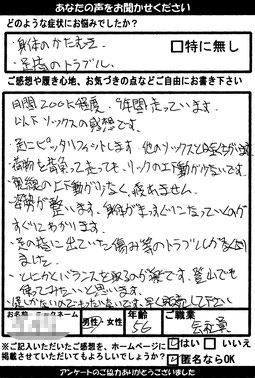 あなたの声をお聞かせください
どのような症状にお悩みでしたか?
・身体のかたむき
□特に無し
・足底のトラブル
ご感想や履き心地、お気づきの点などご自由にお書き下さい
月間200K程度、9年間走っています。
以下ソックスの感想です。
・足にピッタリフィットします。他のソックスと
・荷物を背負って走っても、リックの上下動が少ないです。
・目線の上下動が少なく、疲れません。
・姿勢が整います。身体がまっすぐになっていくのが
すぐにわかります。
・足の指に出ていた傷み等のトラブルが
ました。
・とにかくバランスを取るのが楽です。登山でも
使ってみたいと思います。
下さい
お名前 ニックネーム
男性 ・ 女性
年齢
56
ご職業
会社員
※ご記入いただいたご感想を、ホームページに
掲載させていただいてもよろしいでしょうか?
はい □いいえ
匿名ならOK
アンケートのご協力ありがとうございました